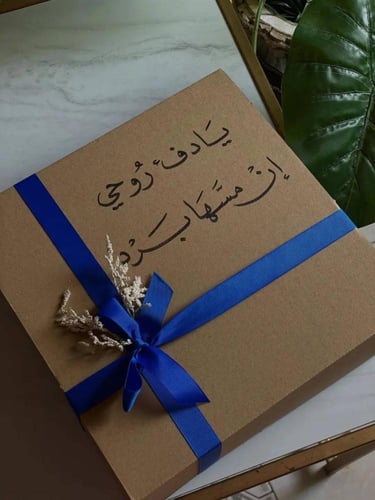 يَا دفءَ رُوحي
إنْ مسّهَا بَرْد